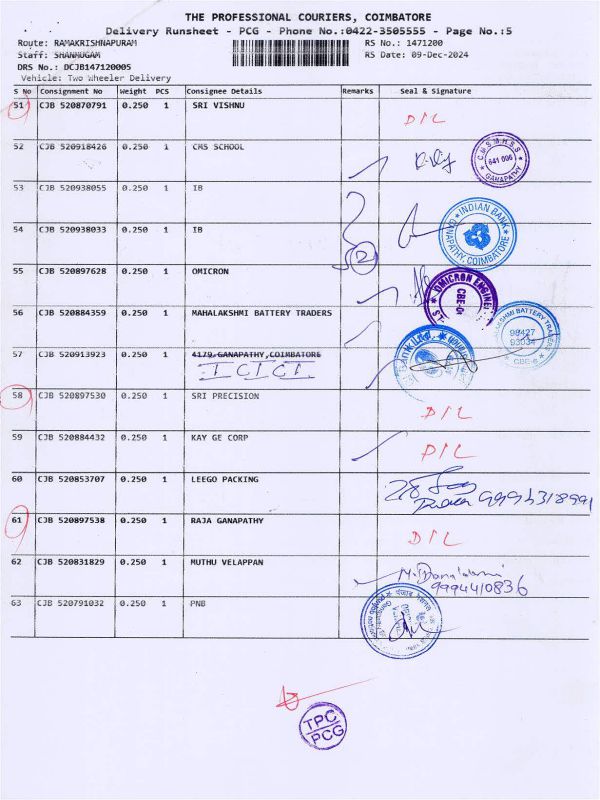 THE PROFESSIONAL COURIERS, COIMBATORE
Delivery Runsheet - PCG - Phone No.:0422-3505555 - Page No.:5
Route: RAMAKRISHNAPURAM RS No.: 1471200
Staff: SHANMUGAM RS Date: 09-Dec-2024
DRS No.: DCJB147120005
Vehicle: Two Wheeler Delivery
S No Consignment No Weight PCS Consignee Details Remarks Seal & Signature
51 CJB 520870791 0.250 1 SRI VISHNU D/L
52 CJB 520918426 0.250 1 CMS SCHOOL C.M.S.M.H.S.S 641 006 GANAPATHY
53 CJB 520938055 0.250 1 IB
54 CJB 520938033 0.250 1 IB 2 INDIAN BANK GANAPATHY, COIMBATORE
55 CJB 520897628 0.250 1 OMICRON OMICRON ENGINE CBE-
56 CJB 520884359 0.250 1 MAHALAKSHMI BATTERY TRADERS LAKSHMI BATTERY TRADERS 98427 93034 CBE-6
57 CJB 520913923 0.250 1 4179,GANAPATHY,COIMBATORE
ICICI
58 CJB 520897530 0.250 1 SRI PRECISION D/L
59 CJB 520884432 0.250 1 KAY GE CORP D/L
60 CJB 520853707 0.250 1 LEEGO PACKING
61 CJB 520897538 0.250 1 RAJA GANAPATHY D/L
62 CJB 520831829 0.250 1 MUTHU VELAPPAN
9994410836
63 CJB 520791032 0.250 1 PNB
TPC
PCG